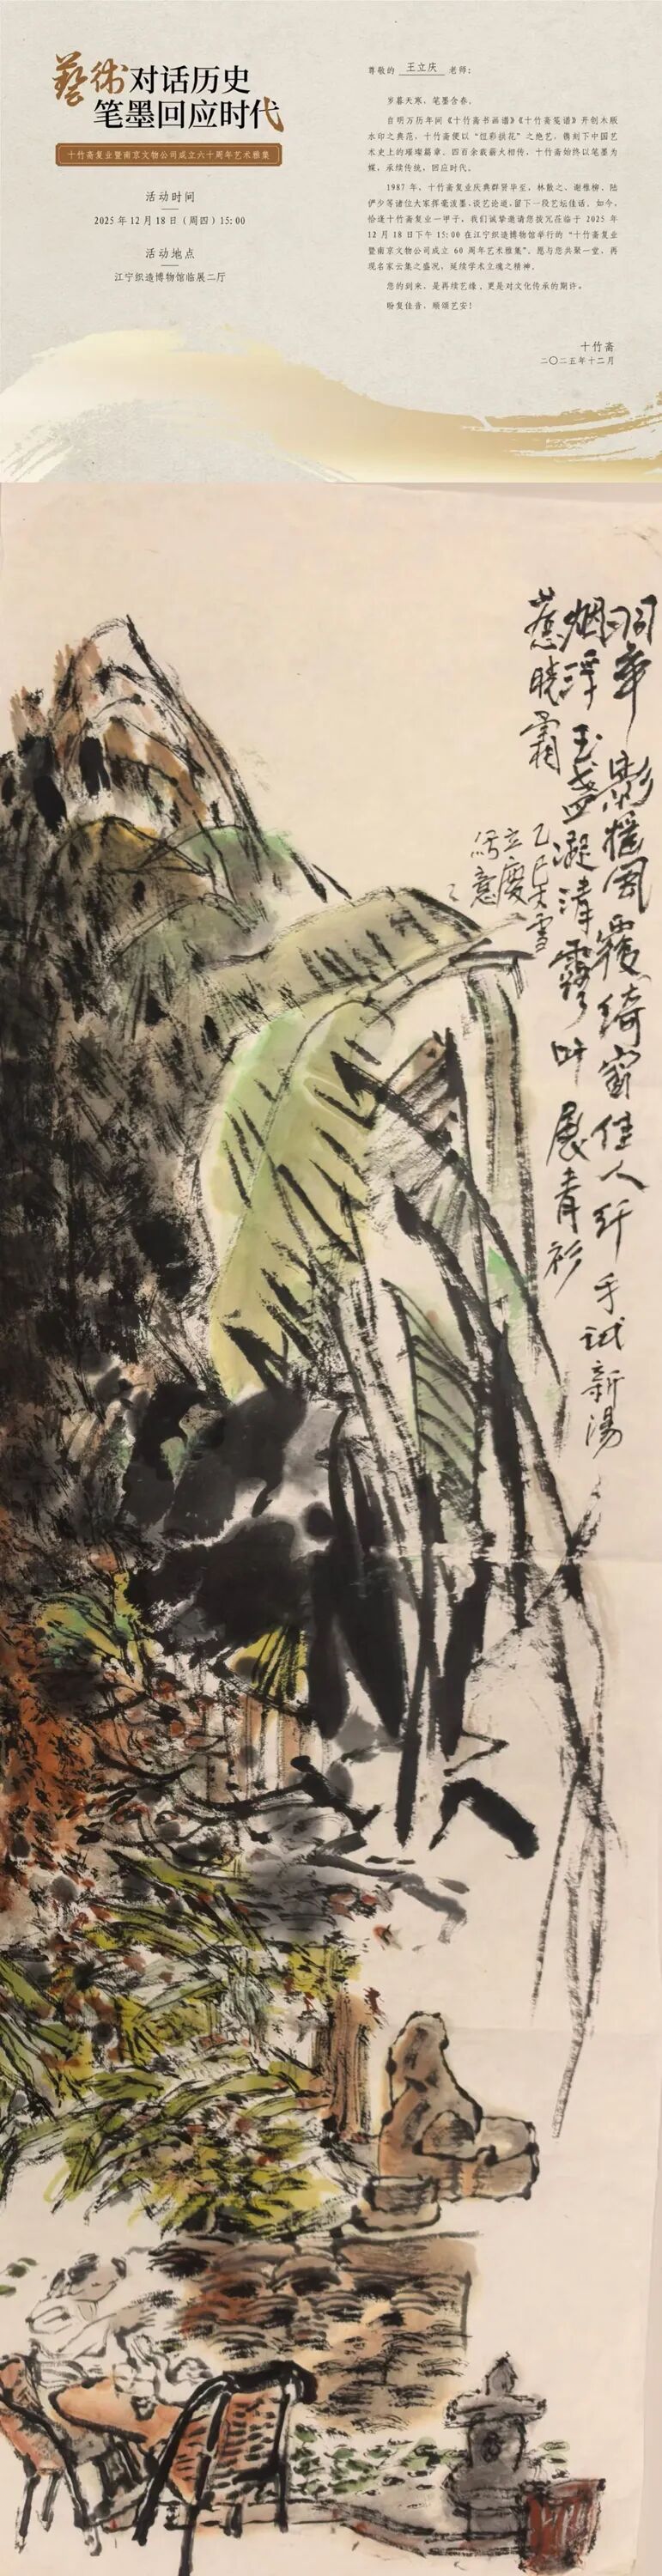 藝術对话历史
笔墨回应时代
十竹斋复业暨南京文物公司成立六十周年艺术雅集
活动时间
2025年12月18日（周四）15:00
活动地点
江宁织造博物馆临展二厅
尊敬的 王立庆 老师：
岁暮天寒，笔墨含春。
自明万历年间《十竹斋书画谱》《十竹斋笺谱》开创木版
水印之典范，十竹斋便以“饾彩拱花”之绝艺，镌刻下中国艺
术史上的璀璨篇章。四百余载薪火相传，十竹斋始终以笔墨为
媒，承续传统，回应时代。
1987 年，十竹斋复业庆典群贤毕至，林散之、谢稚柳、陆
俨少等诸位大家挥毫泼墨、谈艺论道，留下一段艺坛佳话。如今，
恰逢十竹斋复业一甲子，我们诚挚邀请您拨冗莅临于 2025 年
12 月 18 日下午 15:00 在江宁织造博物馆举行的“十竹斋复业
暨南京文物公司成立 60 周年艺术雅集”。愿与您共聚一堂，再
现名家云集之盛况，延续学术立魂之精神。
您的到来，是再续艺缘，更是对文化传承的期许。
盼复佳音，顺颂艺安！
十竹斋
二〇二五年十二月
影摇风覆绮窗佳人纤手试新汤
烟浮玉盏凝清露叶展青衫
惹晓霜
乙巳大雪
立庆
写意